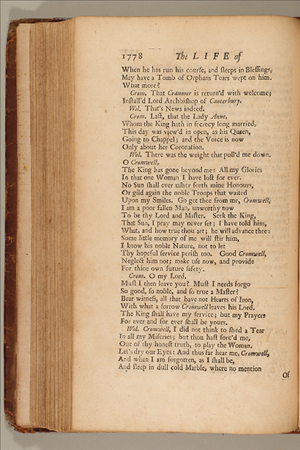 1778 The LIFE of
When he has run his course, and sleeps in Blessings,
May have a Tomb of Orphans Tears wept on him.
What more?
Crom. That Cranmer is return'd with welcome;
Install'd Lord Archbishop of Canterbury.
Wol. That's News indeed.
Crom. Last, that the Lady Anne,
Whom the King hath in secrecy long married,
This day was view'd in open, as his Queen,
Going to Chappel; and the Voice is now
Only about her Coronation.
Wol. There was the weight that pull'd me down.
O Cromwell,
The King has gone beyond me: All my Glories
In that one Woman I have lost for ever.
No Sun shall ever usher forth mine Honours,
Or gild again the noble Troops that waited
Upon my Smiles. Go get thee from me, Cromwell,
I am a poor fallen Man, unworthy now
To be thy Lord and Master. Seek the King,
That Sun, I pray may never set: I have told him,
What, and how true thou art; he will advance thee:
Some little memory of me will stir him,
I know his noble Nature, not to let
Thy hopeful service perish too. Good Cromwell,
Neglect him not; make use now, and provide
For thine own future safety.
Crom. O my Lord,
Must I then leave you? Must I needs forgo
So good, so noble, and so true a Master?
Bear witness, all that have not Hearts of Iron,
With what a sorrow Cromwell leaves his Lord.
The King shall have my service; but my Prayers
For ever and for ever shall be yours.
Wol. Cromwell, I did not think to shed a Tear
In all my Miseries; but thou hast forc'd me,
Out of thy honest truth, to play the Woman.
Let's dry our Eyes: And thus far hear me, Cromwell,
And when I am forgotten, as I shall be,
And sleep in dull cold Marble, where no mention
Of